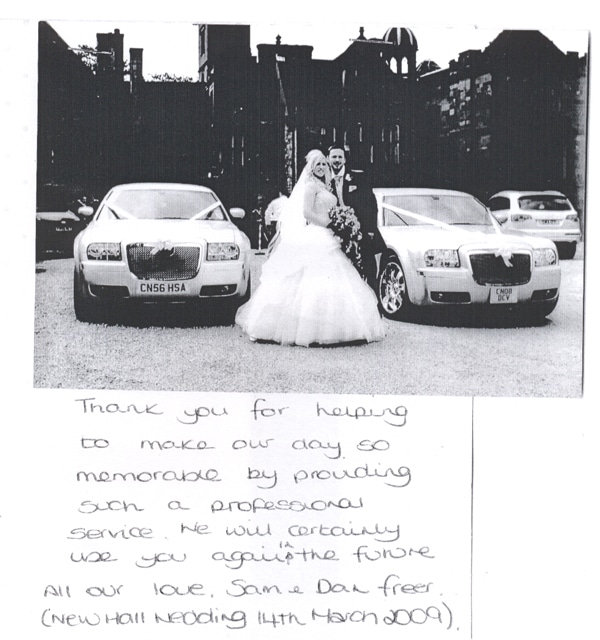 CN56 HSA
CN08
DCV
Thank you for helping
to make our day so
memorable by providing
such a professional
service. We will certainly
use you again in the future
All our love, Sam & Dan freer.
(New Hall Wedding 14th March 2009).